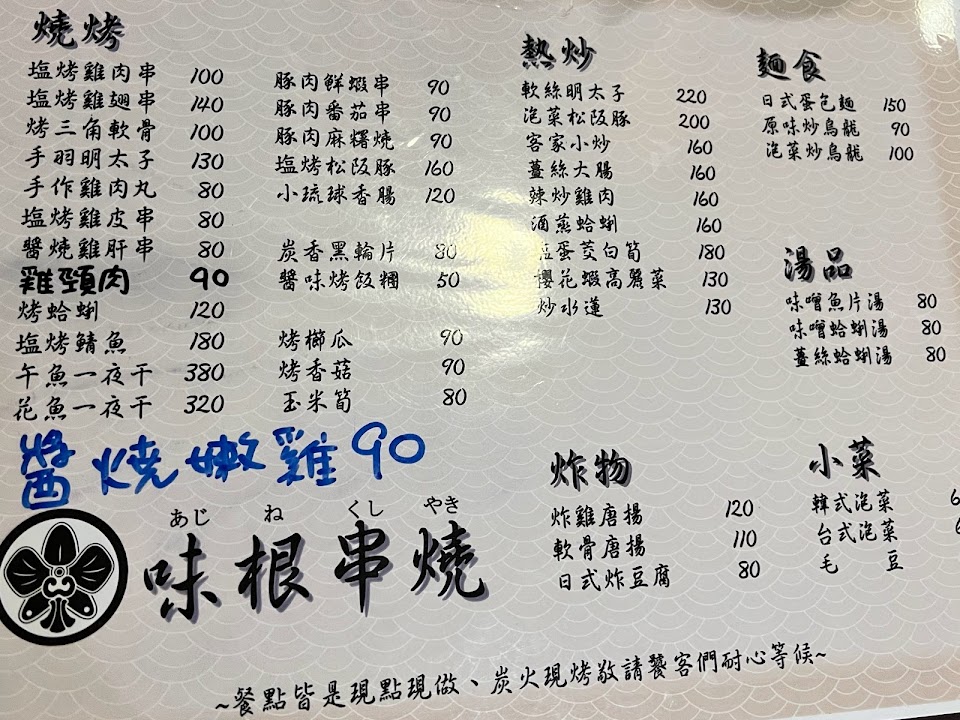 燒烤
塩烤雞肉串 100
塩烤雞翅串 140
烤三角軟骨 100
手羽明太子 130
手作雞肉丸 80
塩烤雞皮串 80
醬燒雞肝串 80
雞頸肉 90
烤蛤蜊 120
塩烤鯖魚 180
午魚一夜干 380
花魚一夜干 320
豚肉鮮蝦串 90
豚肉番茄串 90
豚肉麻糬燒 90
塩烤松阪豚 160
小琉球香腸 120
炭香黑輪片 80
醬味烤飯糰 50
烤櫛瓜 90
烤香菇 90
玉米筍 80
醬燒嫩雞 90
熱炒
軟絲明太子 220
泡菜松阪豚 200
客家小炒 160
薑絲大腸 160
辣炒雞肉 160
酒蒸蛤蜊 160
蛋茭白筍 180
櫻花蝦高麗菜 130
炒水蓮 130
麵食
日式蛋包麵 150
原味炒烏龍 90
泡菜炒烏龍 100
湯品
味噌魚片湯 80
味噌蛤蜊湯 80
薑絲蛤蜊湯 80
炸物
炸雞唐揚 120
軟骨唐揚 110
日式炸豆腐 80
小菜
韓式泡菜
台式泡菜
毛豆
あじ ね くし やき
味根串燒
~餐點皆是現點現做、炭火現烤敬請饕客們耐心等候~